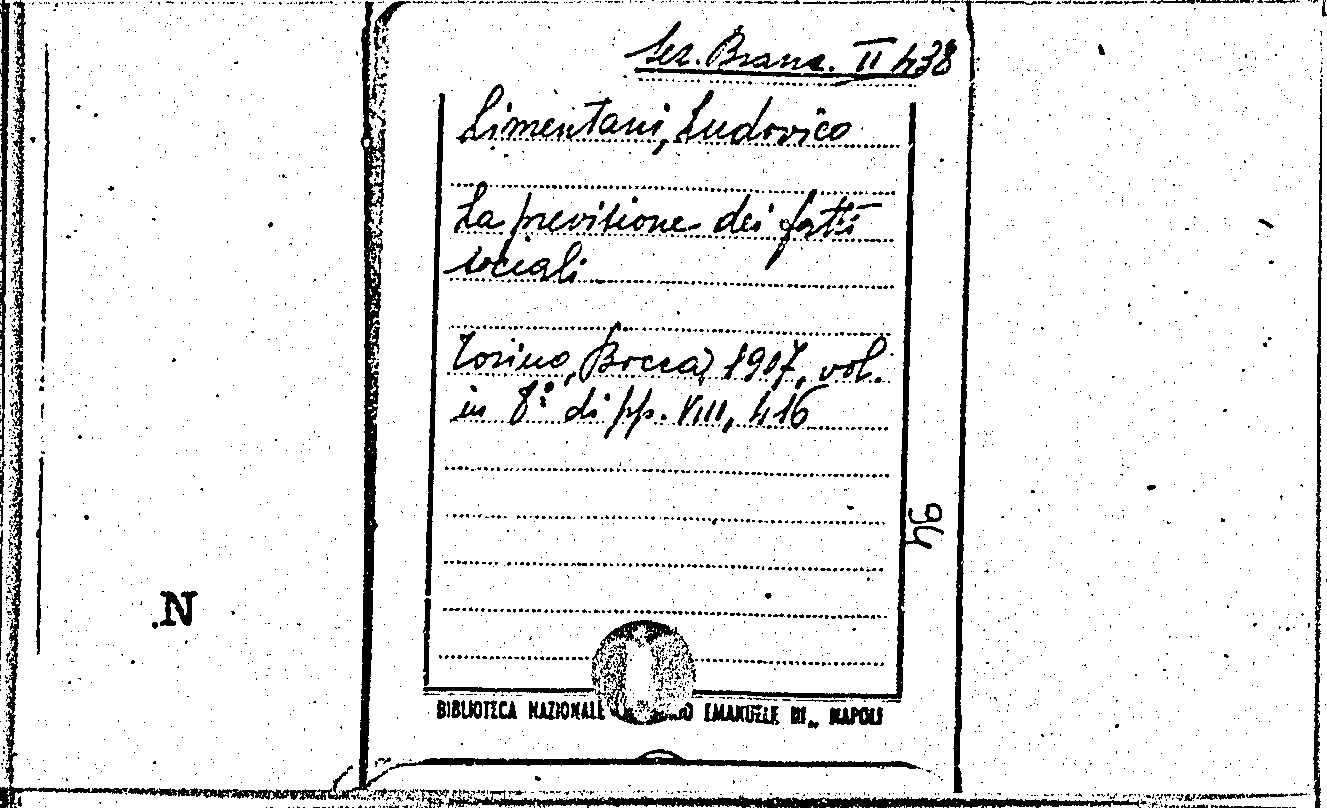 Sez. Branc. II 438
Limentani, Ludovico
La previsione dei fatti
sociali
Torino, Bocca, 1907, vol.
in 8.º di pp. VIII, 416
94
.N
BIBLIOTECA NAZIONALE EMANUELE III„ NAPOLI